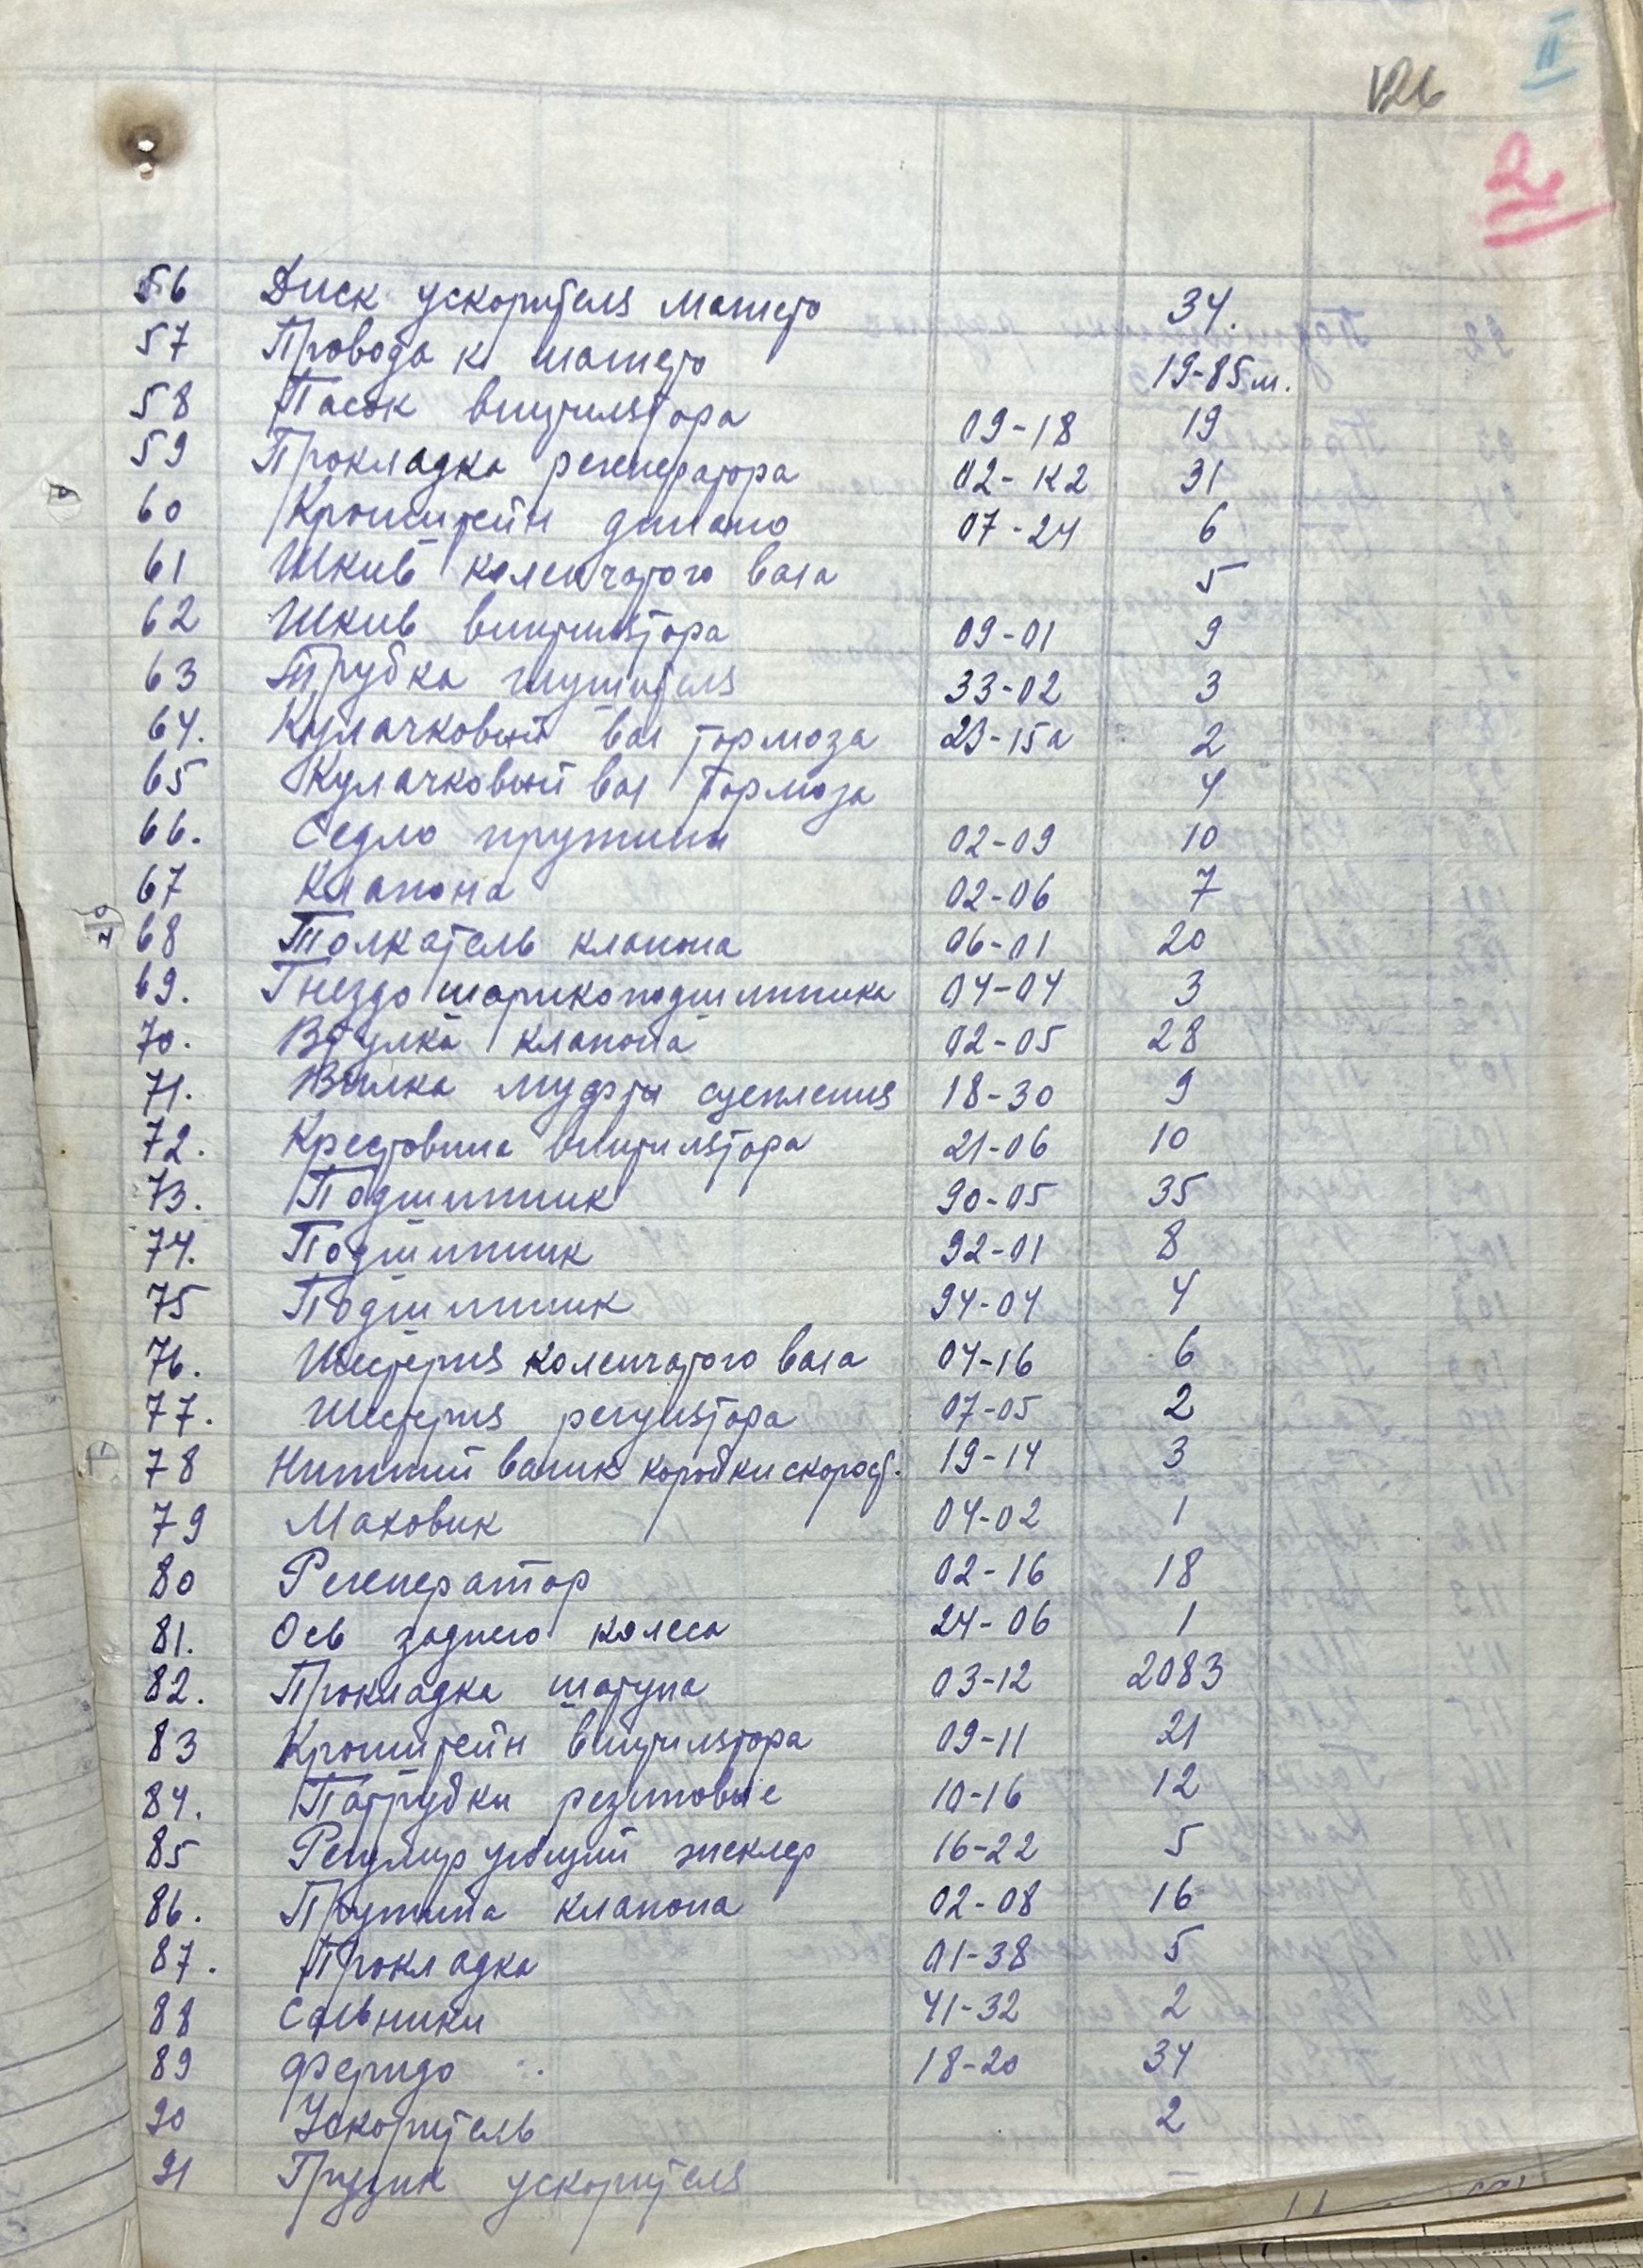 126
II
2
56 Диск ускорителя магнето 34.
57 Провода к магнето 19-85 м.
58 Пасок вентилятора 09-18 19
59 Прокладка регенератора 02-12 31
60 Кронштейн динамо 07-24 6
61 Шкив коленчатого вала 5
62 Шкив вентилятора 09-01 9
63 Трубка глушителя 33-02 3
64. Кулачковый вал тормоза 23-15а 2
65 Кулачковый вал тормоза 4
66. Седло пружины 02-09 10
67 Клапона 02-06 7
68 Толкатель клапона 06-01 20
69. Гнездо шарикоподшипника 04-04 3
70. Втулка клапона 02-05 28
71. Вилка муфты сцепления 18-30 9
72. Крестовина вентилятора 21-06 10
73. Подшипник 90-05 35
74. Подшипник 92-01 8
75 Подшипник 94-04 4
76. Шестерня коленчатого вала 04-16 6
77. Шестерня регулятора 07-05 2
78 Нижний валик коробки скорост. 19-14 3
79 Маховик 04-02 1
80 Регенератор 02-16 18
81. Ось заднего колеса 24-06 1
82. Прокладка шатуна 03-12 2083
83 Кронштейн вентилятора 09-11 21
84. Патрубки резиновые 10-16 12
85 Регулирующий жеклер 16-22 5
86. Пружина клапона 02-08 16
87. Прокладка 01-38 5
88 Сальники 41-32 2
89 Феридо 18-20 34
90 Ускоритель 2
91 Грузик ускорителя